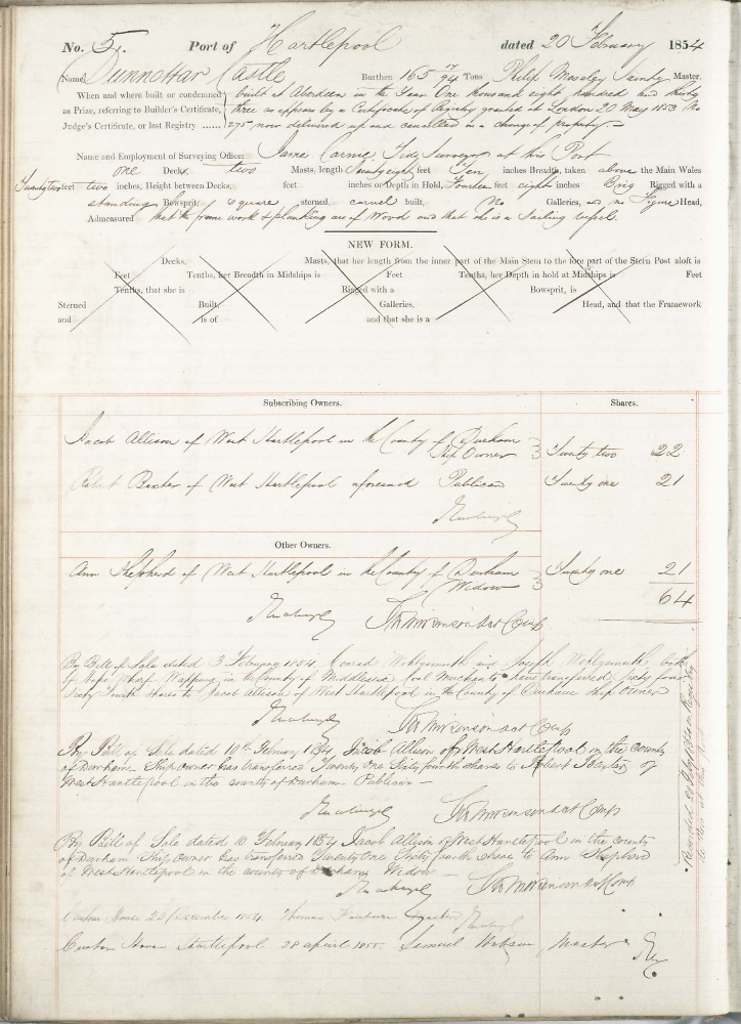 No. 5. Port of Hartlepool dated 20 February 1854
Name, Dunnottar Castle Burthen 165 17/94 Tons Philip Master.
When and where built or condemned built at Aberdeen in the Year One thousand eight hundred and thirty
as Prize, referring to Builder's Certificate, three as appears by a Certificate of Registry granted at London 20 May 1853 No
Judge's Certificate, or last Registry ...... 275 now delivered up and cancelled in a change of property.
Name and Employment of Surveying Officer James Tide Surveyor at this Port
one Decks, two Masts, length Seventy eight feet Ten inches Breadth, taken above the Main Wales
Twenty two feet two inches, Height between Decks, feet inches or Depth in Hold, Fourteen feet eight inches Brig Rigged with a
standing Bowsprit, square sterned, carvel built, No Galleries, and no Figure Head,
Admeasured that the frame work & planking are of Wood and that she is a Sailing vessel.
NEW FORM.
Decks, Masts, that her length from the inner part of the Main Stem to the fore part of the Stern Post aloft is
Feet Tenths, her Breadth in Midships is Feet Tenths, her Depth in hold at Midships is Feet
Tenths, that she is Rigged with a Bowsprit, is
Sterned Built, Galleries. Head, and that the Framework
and is of and that she is a
Subscribing Owners. Shares.
Jacob Allison of West Hartlepool in the County of Durham
Ship Owner Twenty two 22
Robert of West Hartlepool aforesaid Publican Twenty one 21
Other Owners.
Ann Shepherd of West Hartlepool in the County of Durham
Widow Twenty one 21
64
By Bill of Sale dated 3 February 1854, Conrad and Joseph both
of Wapping in the County of Middlesex Coal Merchants have transferred Sixty four
Sixty fourth shares to Jacob Allison of West Hartlepool in the County of Durham Ship Owner
By Bill of Sale dated 10th February 1854 Jacob Allison of West Hartlepool in the county
of Durham Ship Owner has transferred Twenty One Sixty fourth shares to Robert of
West Hartlepool in the county of Durham Publican
By Bill of Sale dated 10 February 1854 Jacob Allison of West Hartlepool in the county
of Durham Ship Owner has transferred Twenty One Sixty fourth shares to Ann Shepherd
of West Hartlepool in the county of Durham Widow
Custom House December 1854 Thomas
Custom House Hartlepool 28 April 1855. Samuel Master